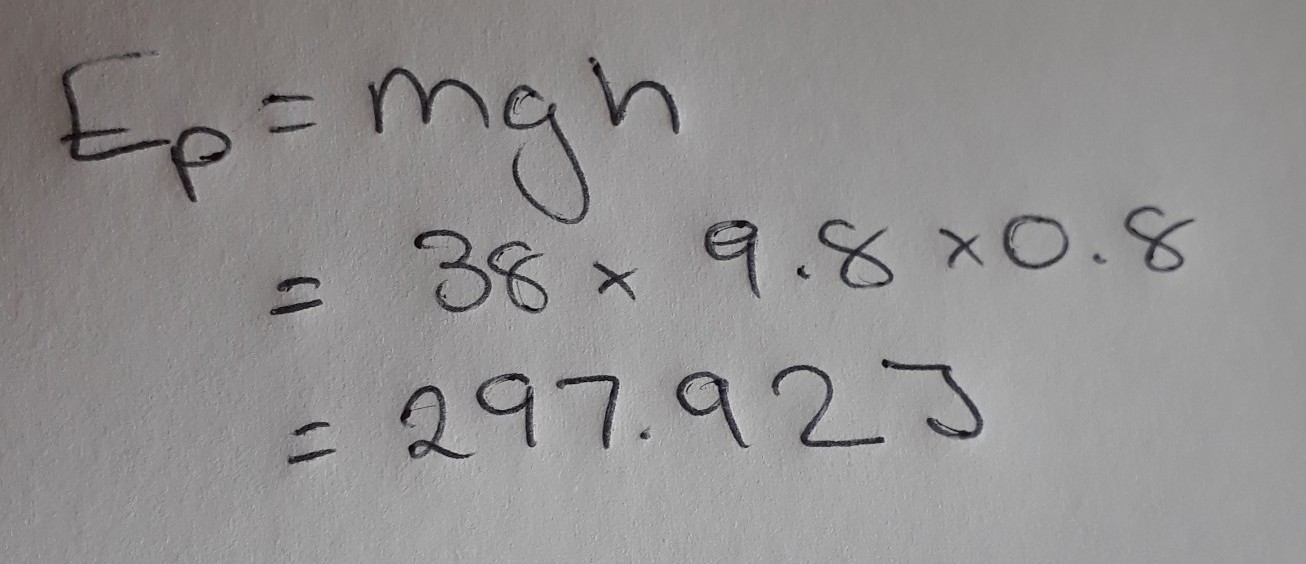 Ep = mgh
= 38 × 9.8 × 0.8
= 297.92 J